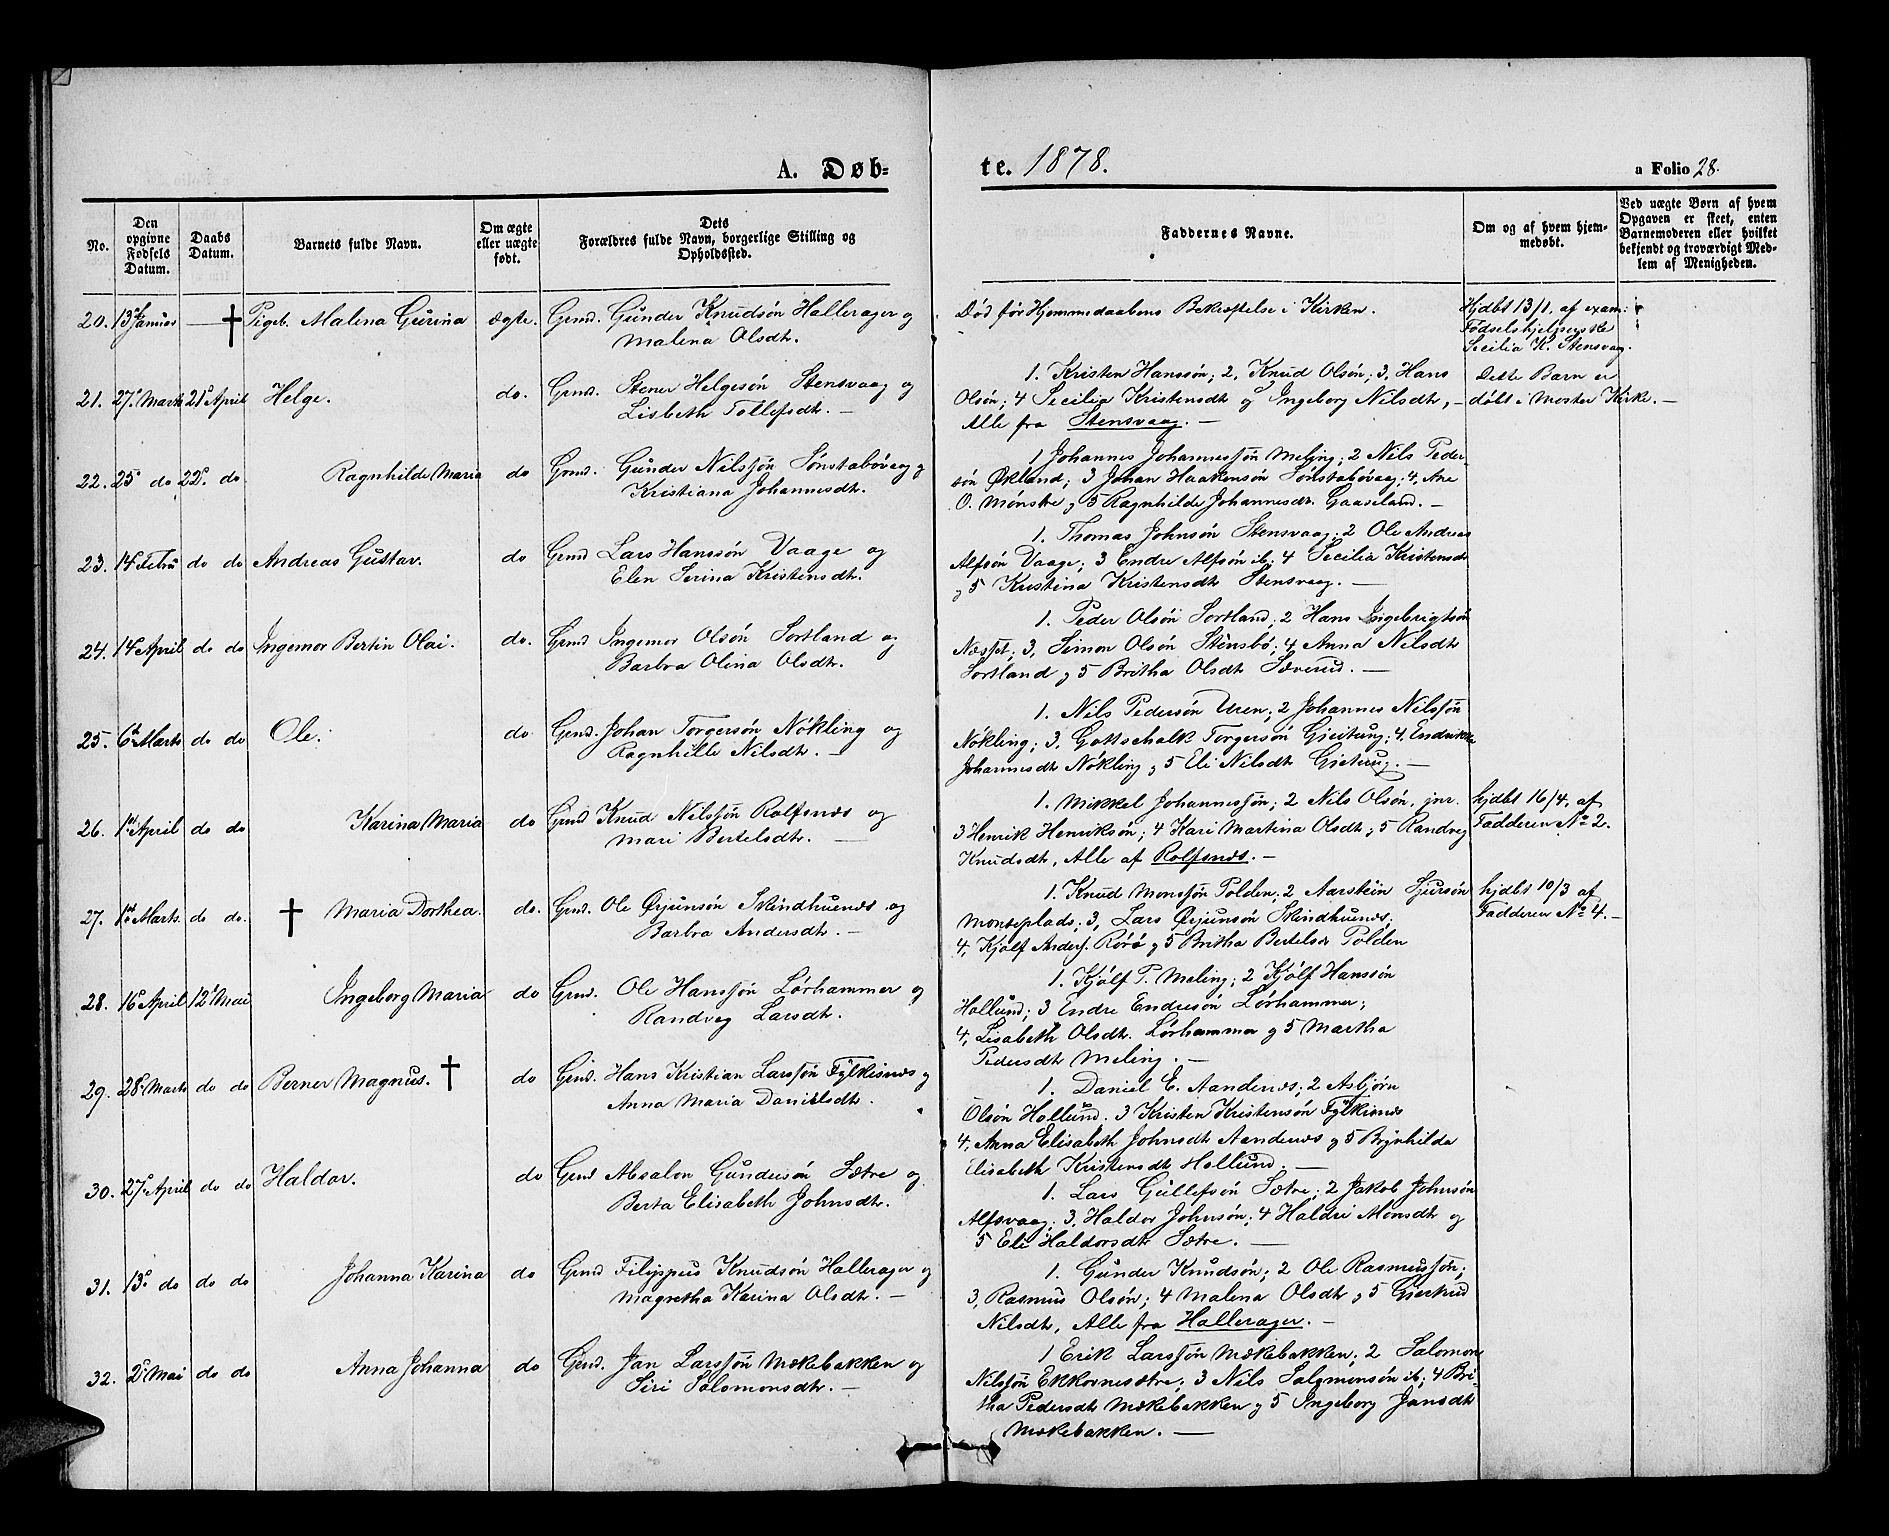 A. Døb-
te. 1878.
a Folio 28.
No.
Den opgivne Fødsels Datum.
Daabs Datum.
Barnets fulde Navn.
Om ægte eller uægte født.
Dets Forældres fulde Navn, borgerlige Stilling og Opholdssted.
Faddernes Navne.
Om og af hvem hjemmedøbt.
Ved uægte Børn af hvem Opgaven er skeet, enten Barnemoderen eller hvilket bekjendt og troværdigt Medlem af Menigheden.
20. 13de Januar — † Pigeb. Malena Gurina ægte. Grmd. Gunder Knudsøn Hallerager og
Malena Olsdtr.
Død før Hjemmedaabens Bekræftelse i Kirken.
Hjdbt 13/1. af exam:
Fødselshjelperske
Cecilia K. Stensvaag.
21. 27. Marts 21. April Helge. do. Grmd. Stener Helgesøn Stensvaag og
Lisbeth Tollefsdtr. —
1. Kristen Hanssøn; 2, Knud Olsøn; 3, Hans
Olsøn; 4 Cecilia Kristensdtr og Ingeborg Nilsdtr, —
Alle fra Stensvaag. —
Dette Barn er
døbt i Moster Kirke. —
22. 25. do 22. do Ragnhilde Maria do Grmd. Gunder Nilssøn Sønstabøvaag og
Kristiana Johannesdtr.
1 Johannes Johannessøn Meling; 2 Nils Peder-
søn Økland; 3 Johan Haakensøn Sønstabøvaag; 4, Ane
O. Mønstre og 5 Ragnhilde Johannesdtr. Gaaseland. —
23. 14. Febru do do Andreas Gustav. do Grmd Lars Hanssøn Vaage og
Elen Serina Kristensdtr.
1. Thomas Johnsøn Stensvaag; 2 Ole Andreas
Alfsøn Vaage; 3 Endre Alfsøn ib; 4 Cecilia Kristensdtr
og 5 Kristina Kristensdtr Stensvaag. —
24. 14. April do do Ingemor Bertin Olai. do. Grmd Ingemor Olsøn Sortland og
Barbra Olina Olsdtr.
1. Peder Olsøn Sortland; 2 Hans Ingebrigtsøn
Næsset; 3, Simon Olsøn Stensbø; 4 Anna Nilsdtr
Sortland og 5 Britha Olsdtr Sæverud. —
25. 6. Marts do do Ole. do Grmd. Johan Torgersøn Nøkling og
Ragnhilde Nilsdtr. —
1. Nils Pedersøn Uren; 2 Johannes Nilssøn
Nøkling; 3, Gottschalk Torgersøn Gieitung; 4. Endrikke
Johannesdtr Nøkling og 5 Eli Nilsdtr Gietung. —
26. 1ste April do do Karina Maria do Grmd Knud Nilssøn Rolfsnæs og
Mari Bertelsdtr. —
1. Mikkel Johannessøn; 2 Nils Olsøn, jnr.
3 Henrik Henriksøn; 4 Kari Martina Olsdtr, og 5 Randveg
Knudsdtr, Alle af Rolfsnæs. —
hjdbt 16/4, af
Fadderen No 2.
27. 1ste Marts. do do. † Maria Dorthea. do. Grmd. Ole Ørjunsøn Skindhuenæs og
Barbro Andersdtr. —
1. Knud Monssøn Polden; 2 Aarstein Sjursøn
Monseplads; 3, Lars Ørjunsøn Skindhuenæs.
4, Kjølf Anders. Rørø og 5 Britha Bertelsdtr Polden
hjdbt 10/3 af
Fadderen No 4. —
28. 16. April 12. Mai Ingeborg Maria do Grmd. Ole Hanssøn Lørhammer og
Randveg Larsdtr.
1. Kjølf P. Meling; 2 Kjølf Hanssøn
Hollund; 3 Endre Endresøn Lørhammer;
4, Lisabeth Olsdtr. Lørhammer og 5 Martha
Pedersdtr Meling. —
29. 28. Marts do do Berner Magnus. † do Grmd. Hans Kristian Larssøn Fylkesnæs og
Anna Maria Danielsdtr.
1. Daniel E. Aandenæs; 2 Asbjørn
Olsøn Hollund. 3 Kristen Kristensøn Fylkesnæs
4, Anna Elisabeth Johnsdtr Aandenæs og 5 Brynhilda
Elisabeth Kristensdtr Hollund. —
30. 27. April do do Haldor. do Grmd Absalon Gundersøn Sætre og
Berta Elisabeth Johnsdtr.
1. Lars Gullefsøn Sætre; 2 Jakob Johnsøn
Alfsvaag; 3, Haldor Johnsøn; 4 Haldri Monsdtr og
5 Eli Haldorsdtr Sætre. —
31. 13. do do do Johanna Karina do Grmd Filippus Knudsøn Hallerager og
Magretha Karina Olsdtr. —
1. Gunder Knudsøn; 2 Ole Rasmussøn;
3, Rasmus Olsøn; 4 Malena Olsdtr og 5 Gjertrud
Nilsdtr, Alle fra Hallerager. —
32. 2. Mai do do Anna Johanna do Grmd. Jan Larssøn Mækebakken og
Siri Salomonsdtr. —
1 Erik Larssøn Mækebakken; 2 Salomon
Nilssøn Ekkornesætre; 3 Nils Salomonsøn ib; 4 Bri-
tha Pedersdtr Mækebakken og 5 Ingeborg Jansdtr
Mækebakken. —